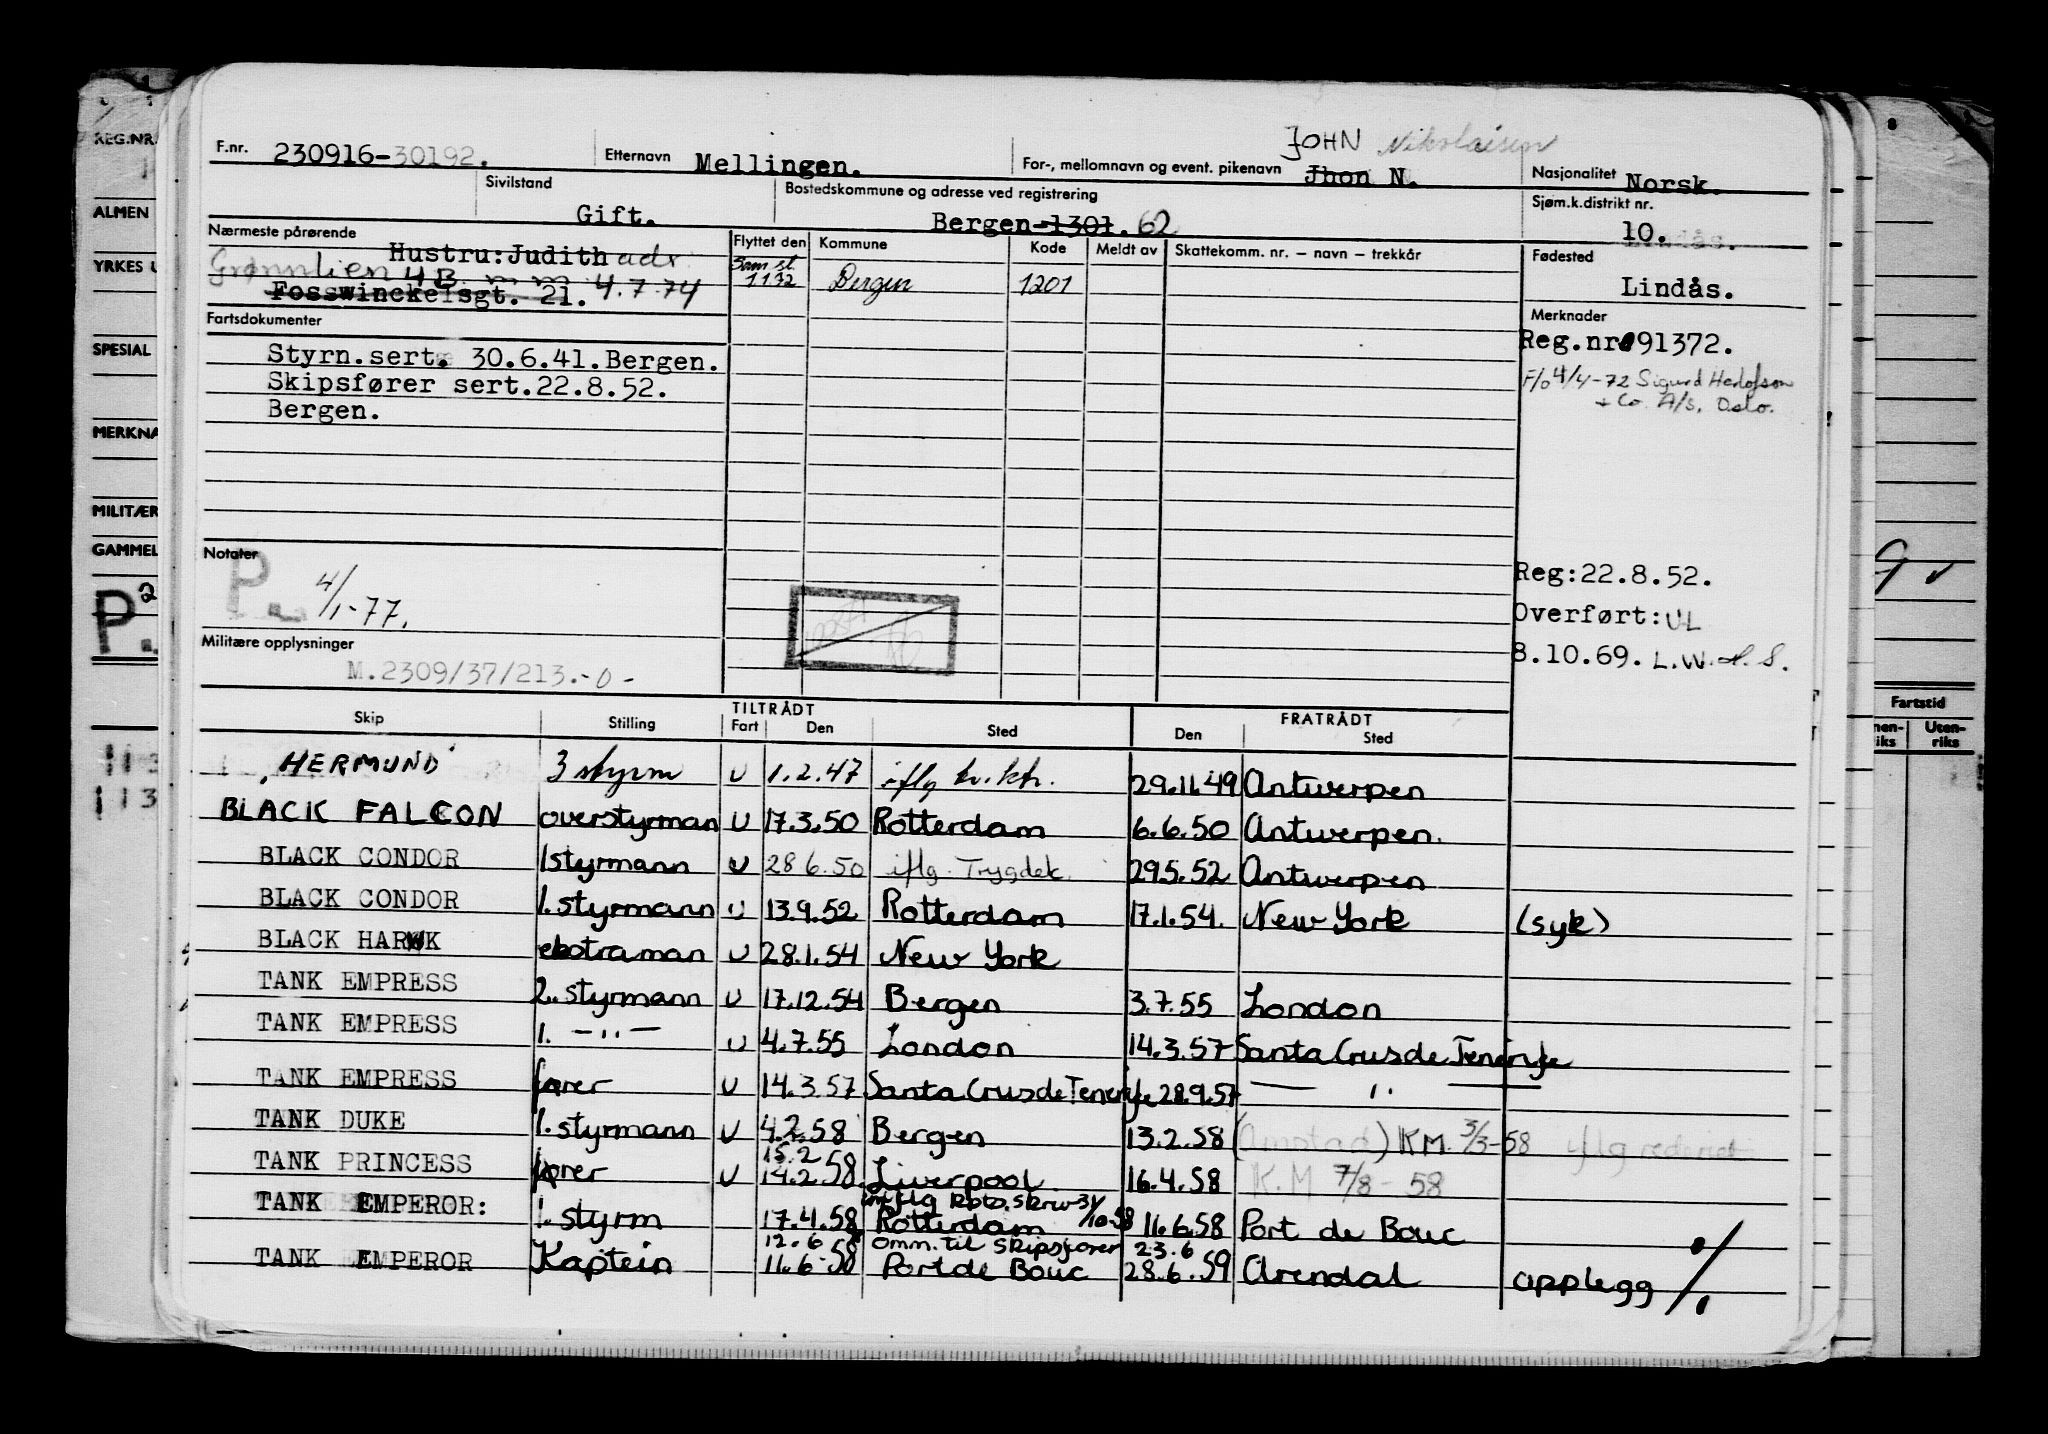 REG.NR.
ALMEN
YRKES U
SPESIAL
MERKNA
MILITÆR
GAMMEL
P. 2
JOHN Nikolaisen
F.nr. 230916-30192. Etternavn Mellingen. For-, mellomnavn og event. pikenavn Jhon N. Nasjonalitet Norsk.
Sivilstand Gift. Bostedskommune og adresse ved registrering Bergen-1301. 62 Sjøm.k.distrikt nr. 10.
Nærmeste pårørende Hustru: Judith adr. Flyttet den Kommune Kode Meldt av Skattekomm. nr. – navn – trekkår Fødested
Grønnlien 4B. 4.7.74 Sam st. 1172 Bergen 1201 Lindås.
Fosswinckelsgt. 21.
Fartsdokumenter Merknader
Styrm.sert. 30.6.41.Bergen. Reg.nr 91372.
Skipsfører sert.22.8.52. F/o 4/4-72 Sigurd Herlofson
Bergen. + Co. A/S. Oslo.
Notater
P. 4/1-77. Reg:22.8.52.
Overført: UL
Militære opplysninger 8.10.69. L.W. H.S.
M.2309/37/213.-0-
TILTRÅDT FRATRÅDT Fartstid
Skip Stilling Fart Den Sted Den Sted Uten-riks
HERMUND 3 styrm U 1.2.47 iflg kv.ktr. 29.11.49 Antwerpen
BLACK FALCON overstyrman U 17.3.50 Rotterdam 6.6.50 Antwerpen.
BLACK CONDOR 1styrmann U 28 6.50 iflg. Trygdek. 29.5.52 Antwerpen
BLACK CONDOR 1. styrmann U 13.9.52 Rotterdam 17.1.54. New York (syk)
BLACK HAWK ekstraman U 28.1.54 New York
TANK EMPRESS 2. styrmann U 17.12.54 Bergen 3.7.55 London
TANK EMPRESS 1. —"— U 4.7.55 London 14.3.57 Santa Crus de Tenerife
TANK EMPRESS fører U 14.3.57 Santa Crus de Tenerife 28.9.57 — " —
TANK DUKE 1. styrmann U 4.2.58 Bergen 13.2.58 (Onstad) KM. 3/3-58 iflg rederiet
TANK PRINCESS fører U 15.2 14.2.58. Liverpool 16.4.58 K.M 7/8-58
TANK EMPEROR: 1. styrm 17.4.58 Rotterdam 11.6.58 Port de Bouc
TANK EMPEROR Kaptein 12.6 11.6.58 omm. til skipsfører Port de Bouc 23.6 28.6.59 Arendal opplegg